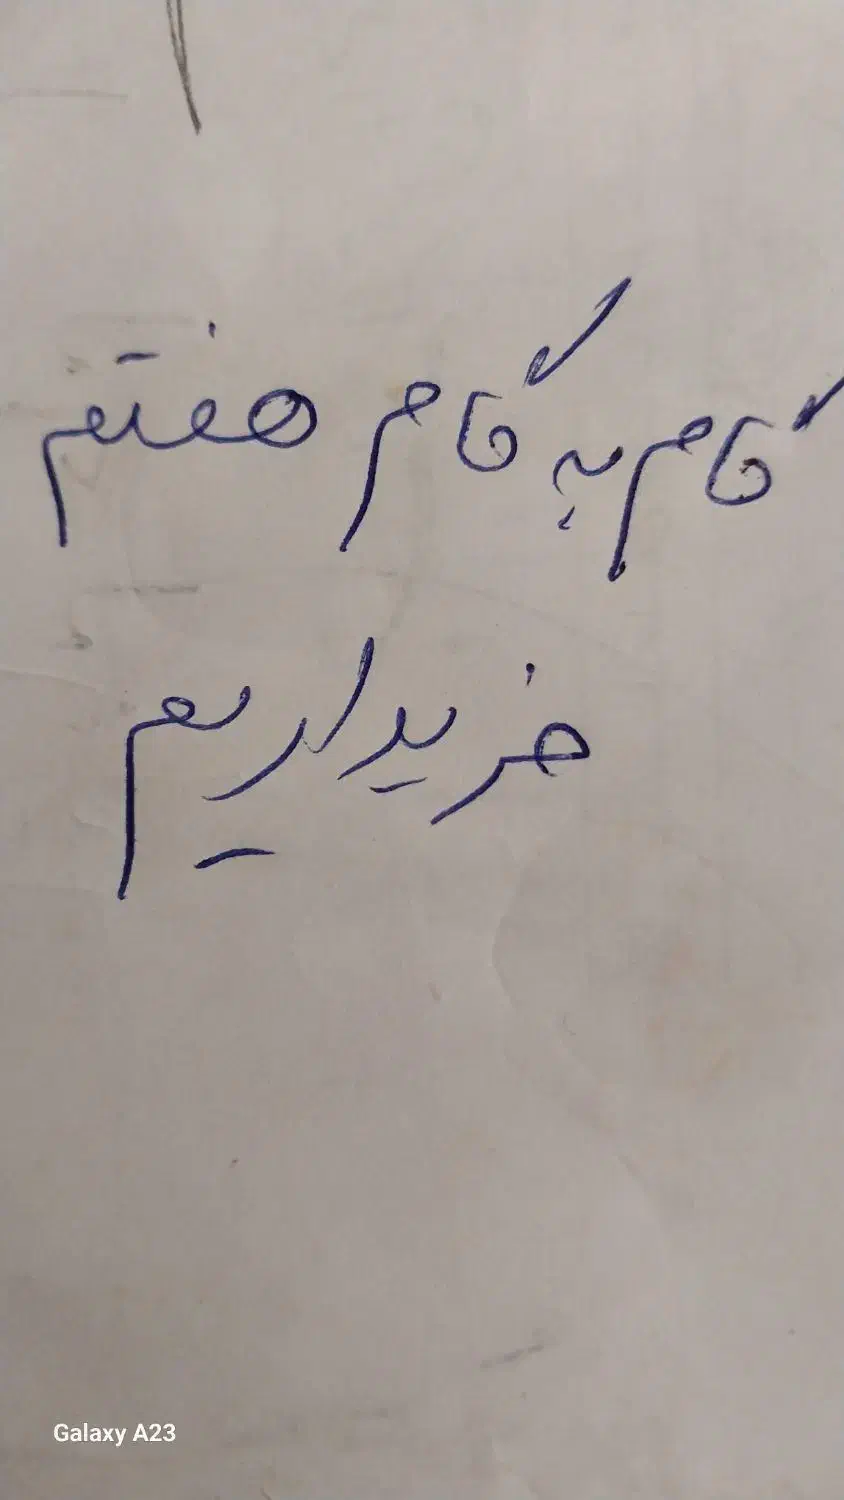 گام به گام هفتم
خریداریم
Galaxy A23